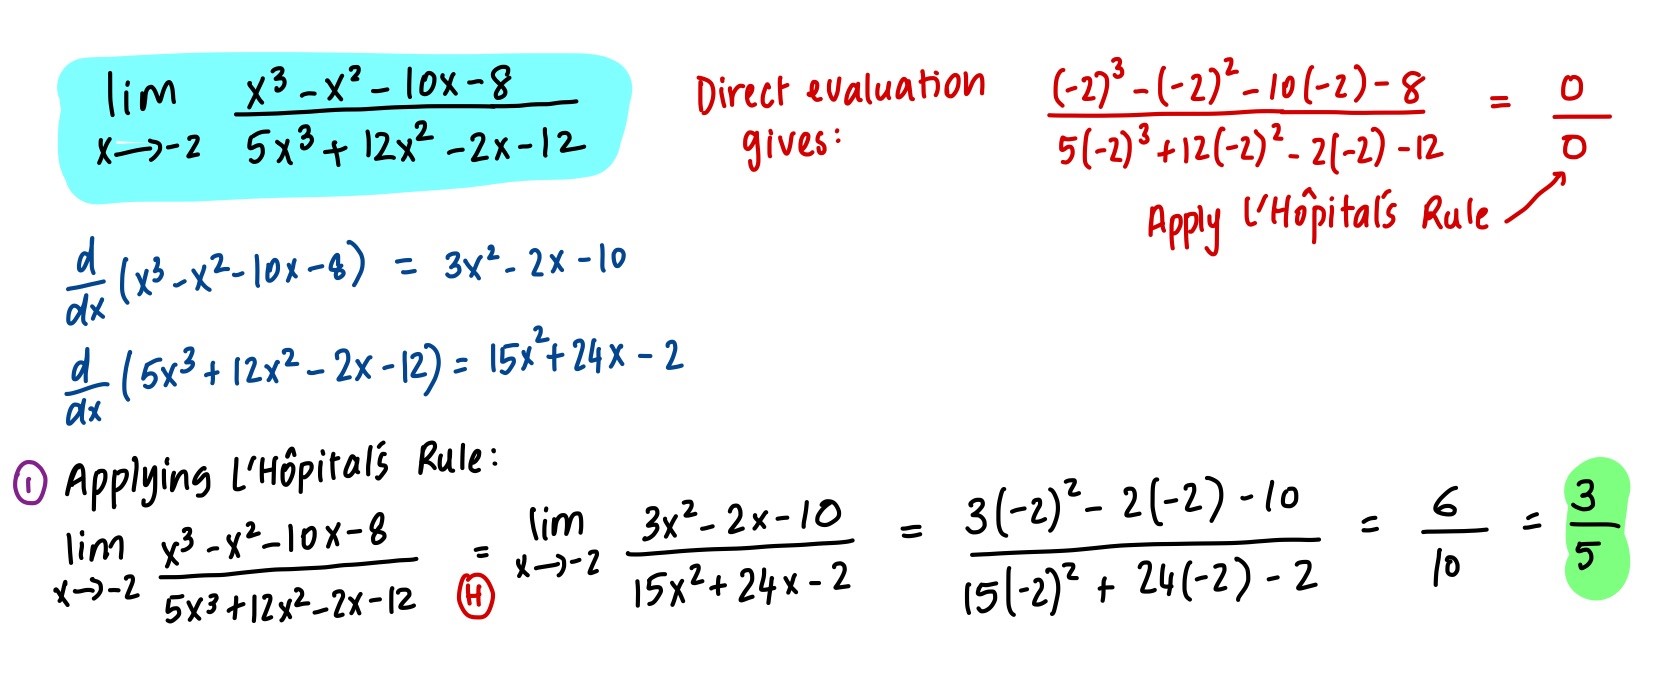 lim x→-2 (x³ - x² - 10x - 8)/(5x³ + 12x² - 2x - 12)
Direct evaluation gives: ((-2)³ - (-2)² - 10(-2) - 8)/(5(-2)³ + 12(-2)² - 2(-2) - 12) = 0/0
Apply L'Hôpital's Rule
d/dx (x³ - x² - 10x - 8) = 3x² - 2x - 10
d/dx (5x³ + 12x² - 2x - 12) = 15x² + 24x - 2
① Applying L'Hôpital's Rule:
lim x→-2 (x³ - x² - 10x - 8)/(5x³ + 12x² - 2x - 12) = Ⓗ lim x→-2 (3x² - 2x - 10)/(15x² + 24x - 2) = (3(-2)² - 2(-2) - 10)/(15(-2)² + 24(-2) - 2) = 6/10 = 3/5